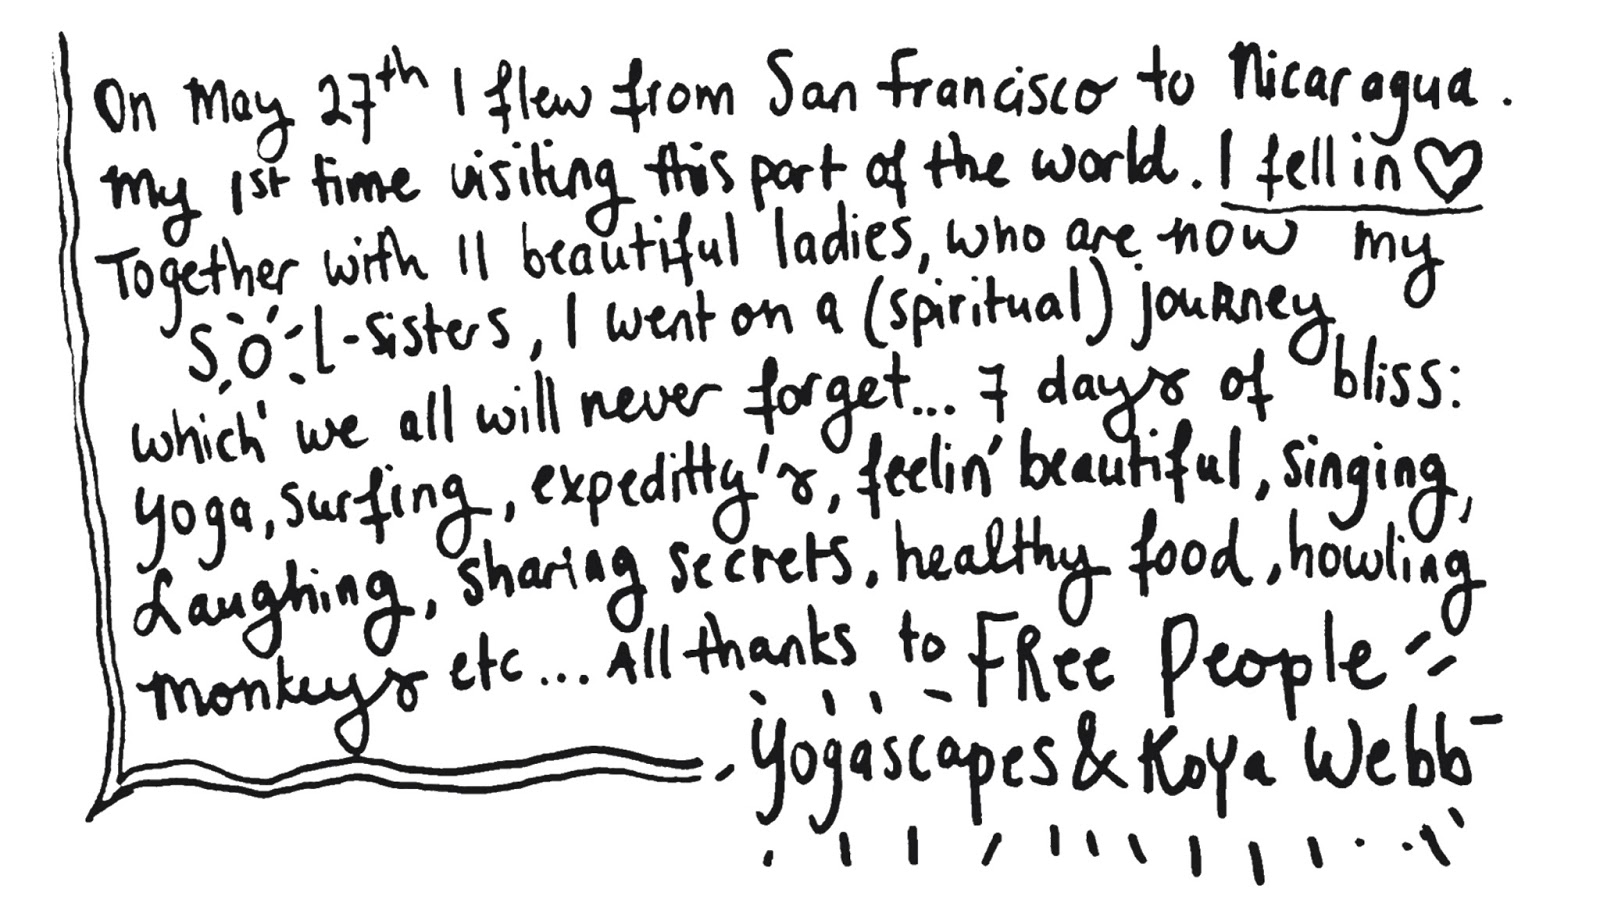 On May 27th I flew from San Francisco to Nicaragua.
My 1st time visiting this part of the world. I fell in ♡
Together with 11 beautiful ladies, who are now my
sol-sisters, I went on a (spiritual) journey
which we all will never forget... 7 days of bliss:
yoga, surfing, expeditty's, feelin' beautiful, singing,
Laughing, sharing secrets, healthy food, howling
monkeys etc... All thanks to FRee People
Yogascapes & Koya Webb